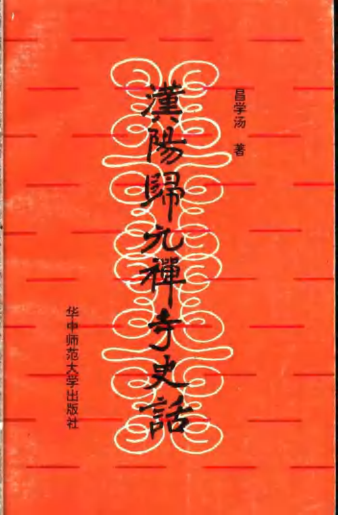 昌学汤 著
漢陽歸元禪寺史話
华中师范大学出版社